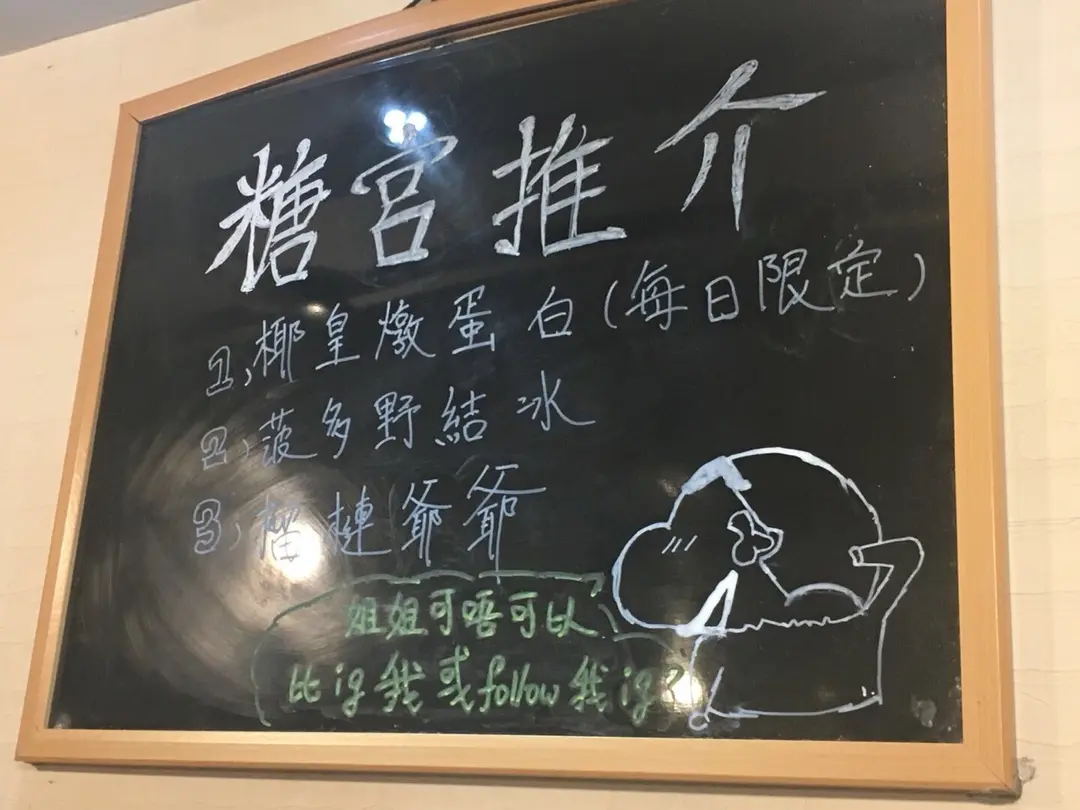 糖宮推介
1,椰皇燉蛋白(每日限定)
2,菠多野結冰
3,榴槤爺爺
姐姐可唔可以
比ig我或follow我ig?